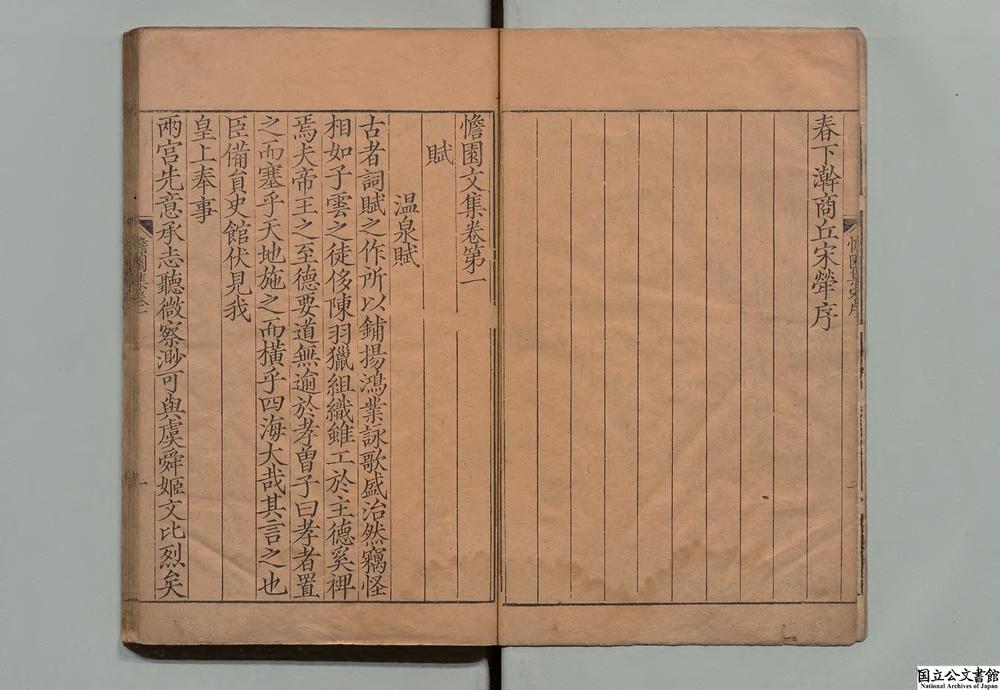 春下澣商丘宋犖序
憺園集序
憺園文集卷第一
賦
温泉賦
古者詞賦之作所以鋪揚鴻業詠歌盛治然竊怪
相如子雲之徒侈陳羽獵組織雖工於主德奚裨
焉夫帝王之至德要道無逾於孝曽子曰孝者置
之而塞乎天地施之而橫乎四海大哉其言之也
臣備員史館伏見我
皇上奉事
兩宮先意承志聽微察渺可與虞舜姬文比烈矣
憺園集卷一
一
国立公文書館
National Archives of Japan